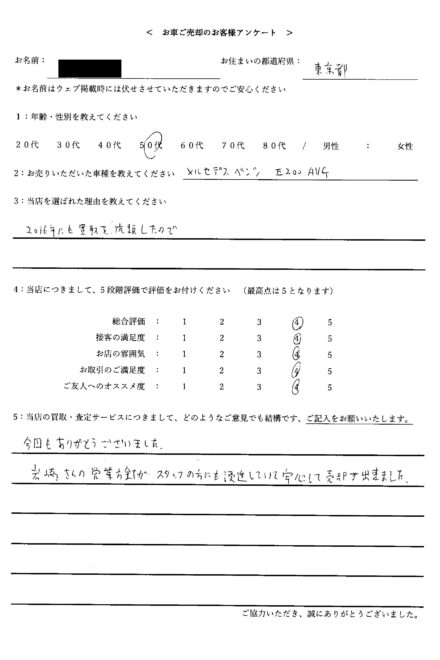 < お車ご売却のお客様アンケート >
お名前: お住まいの都道府県: 東京都
*お名前はウェブ掲載時には伏せさせていただきますのでご安心ください
1:年齢・性別を教えてください
20代 30代 40代 50代 60代 70代 80代 / 男性 : 女性
2:お売りいただいた車種を教えてください メルセデスベンツ E200 AMG
3:当店を選ばれた理由を教えてください
2016年にも買取を依頼したので
4:当店につきまして、5段階評価で評価をお付けください (最高点は5となります)
総合評価 : 1 2 3 4 5
接客の満足度 : 1 2 3 4 5
お店の雰囲気 : 1 2 3 4 5
お取引のご満足度 : 1 2 3 4 5
ご友人へのオススメ度 : 1 2 3 4 5
5:当店の買取・査定サービスにつきまして、どのようなご意見でも結構です、ご記入をお願いいたします。
今回もありがとうございました。
さんの営業方針が スタッフの方にも浸透していて安心して売却が出来ました。
ご協力いただき、誠にありがとうございました。